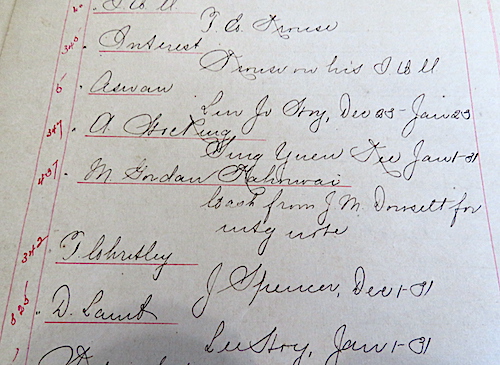 I.O.U
T. B. Krouse
340. Interest
Krouse on his I.O.U
5. Aswan
Lin Jo Hoy, Dec 23 - Jan 23
347. A Hocking
Ming Yuen Dec Jan 1-31
437. M Gordan Kahuwai
Cash from J. M. Dowsett for
mtg note
342.
J Spencer, Dec 1-31
825. D. Lamb
Lee Hoy, Jan 1-31